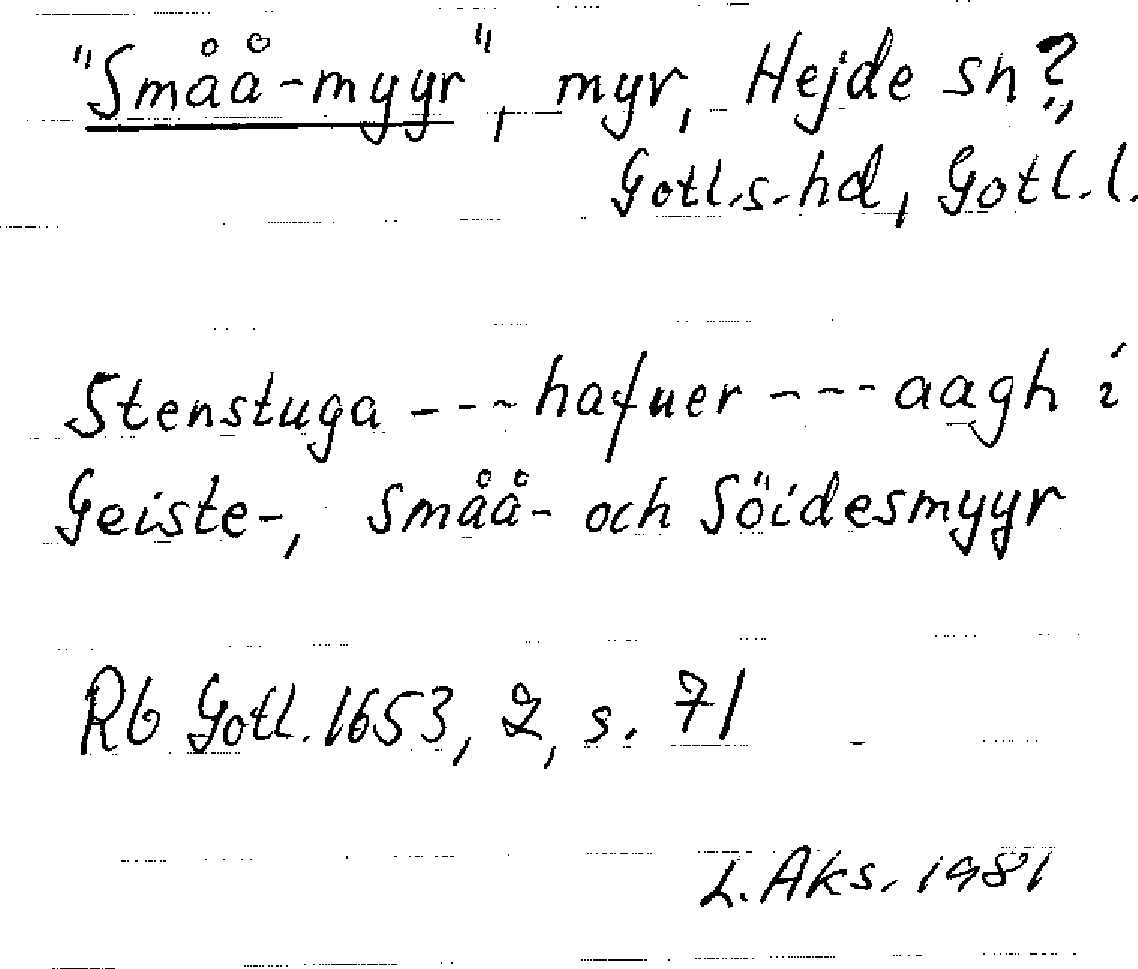 "Småå-myyr", myr, Hejde sn?,
Gotl.s.hd, Gotl.l.
Stenstuga --- hafuer --- aagh i
Geiste-, Småå- och Söidesmyyr
Rb Gotl. 1653, 2, s. 71
L. Aks. 1981